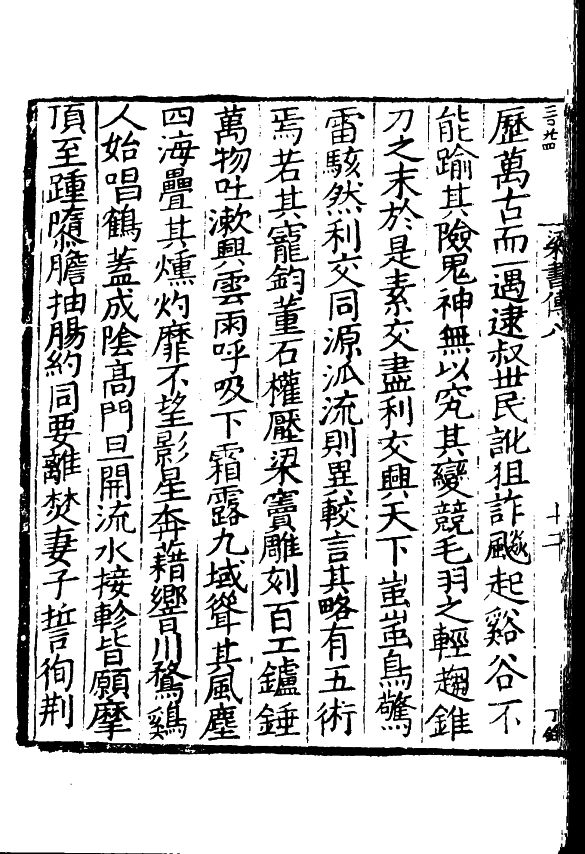 歷萬古而一遇逮叔世民訛狙詐飈起谿谷不
能踰其險鬼神無以究其變競毛羽之輕趨錐
刀之末於是素交盡利交興天下蚩蚩鳥驚
雷駭然利交同源派流則異較言其略有五術
焉若其寵鈞董石權壓梁竇雕刻百工鑪錘
萬物吐漱興雲雨呼吸下霜露九域聳其風塵
四海疊其燻灼靡不望影星奔藉響川鶩鷄
人始唱鶴蓋成陰高門旦開流水接軫皆願摩
頂至踵隳膽抽腸約同要離焚妻子誓徇荆
梁書傳八